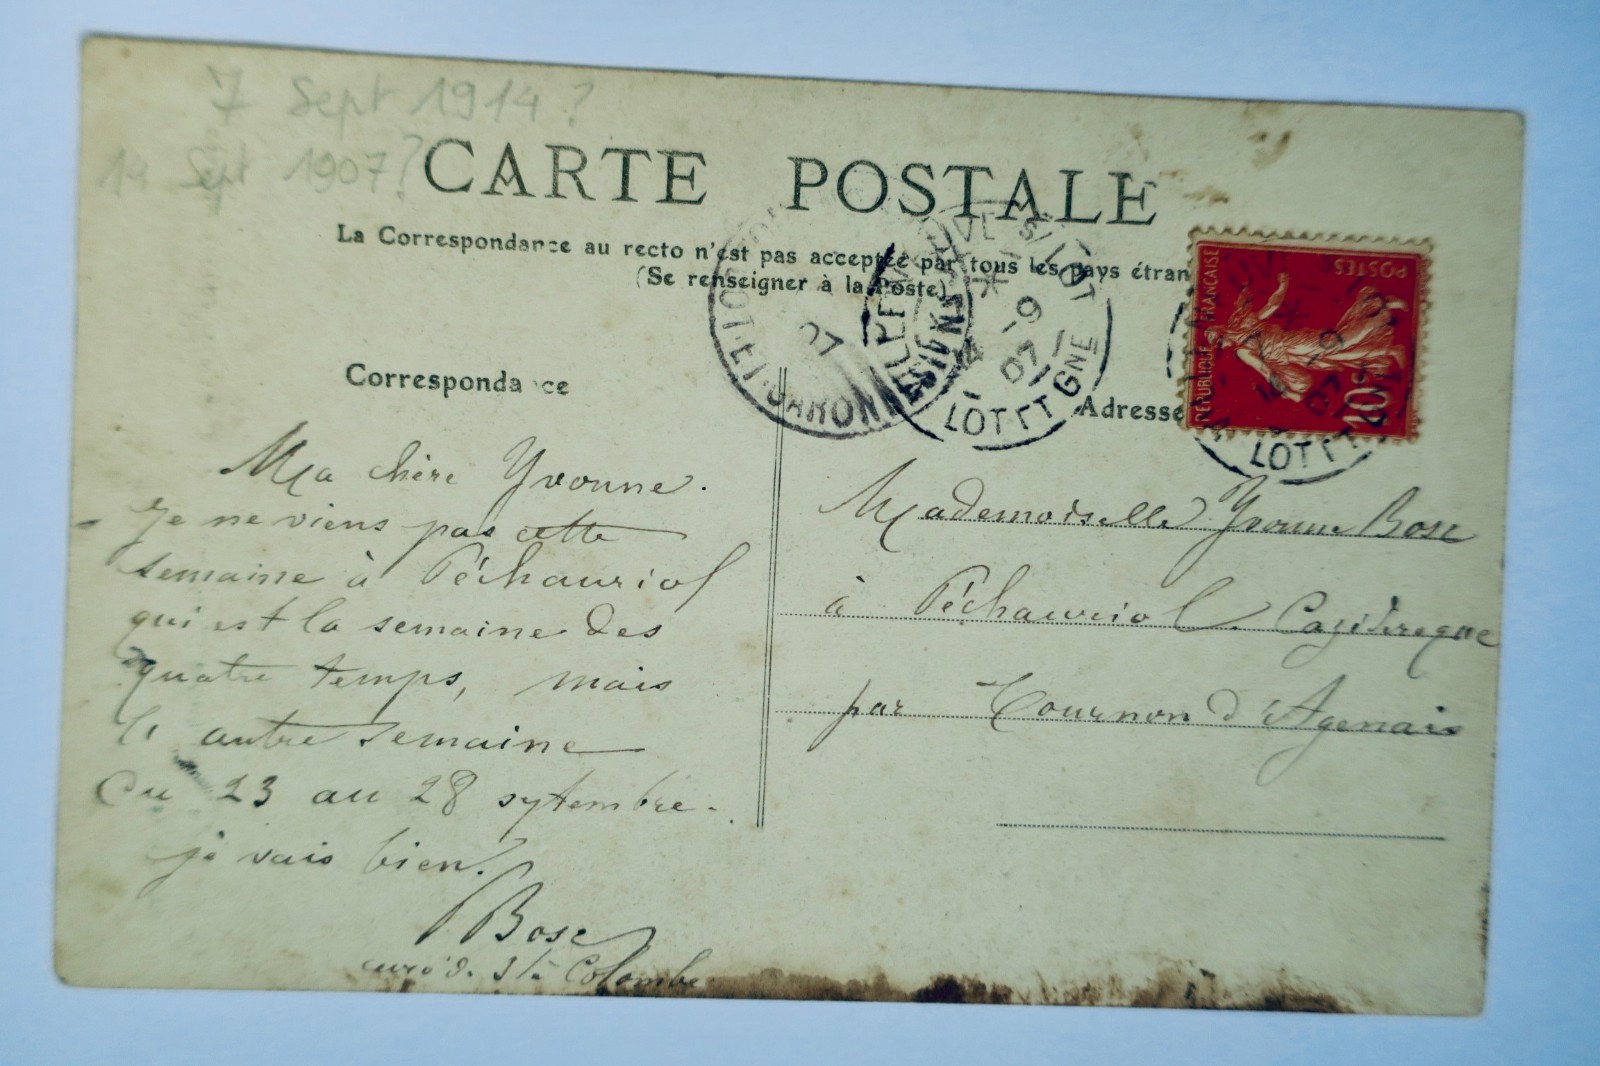 7 Sept 1914?
14 Sept 1907?
CARTE POSTALE
La Correspondance au recto n'est pas acceptée par tous les pays étran
(Se renseigner à la Poste)
VILLENEUVE S/LOT
14 -9
07
LOT ET GNE
LOT-ET-GARONNE
07
REPUBLIQUE FRANÇAISE
POSTES
10c
LOT ET
Correspondance
Adresse
Ma chère Yvonne.
Je ne viens pas cette
semaine à Péchauriol
qui est la semaine des
quatre temps, mais
l'autre semaine
Du 23 au 28 sytembre.
je vais bien.
Bosc
curé de Ste Colombe
Mademoiselle Yvonne Bosc
à Péchauriol Cazideroque
par Tournon d'Agenais